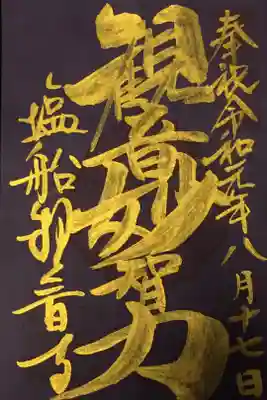 奉祝令和元年八月十七日
観音妙智力
塩船観音寺